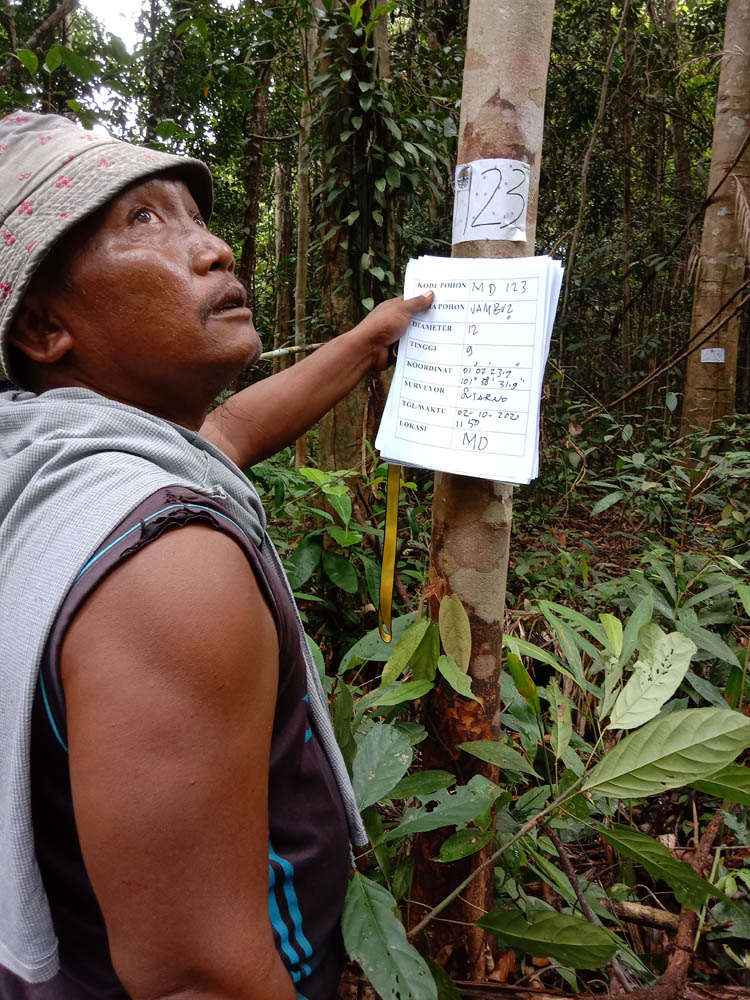 123
KODE POHON MD 123
POHON JAMBU2
DIAMETER 12
TINGGI 9
KOORDINAT 01° 02' 23.9"
101° 38' 31.9"
SURVEYOR SUTARNO
TGL/WAKTU 02-10-2021
11 50
LOKASI MD